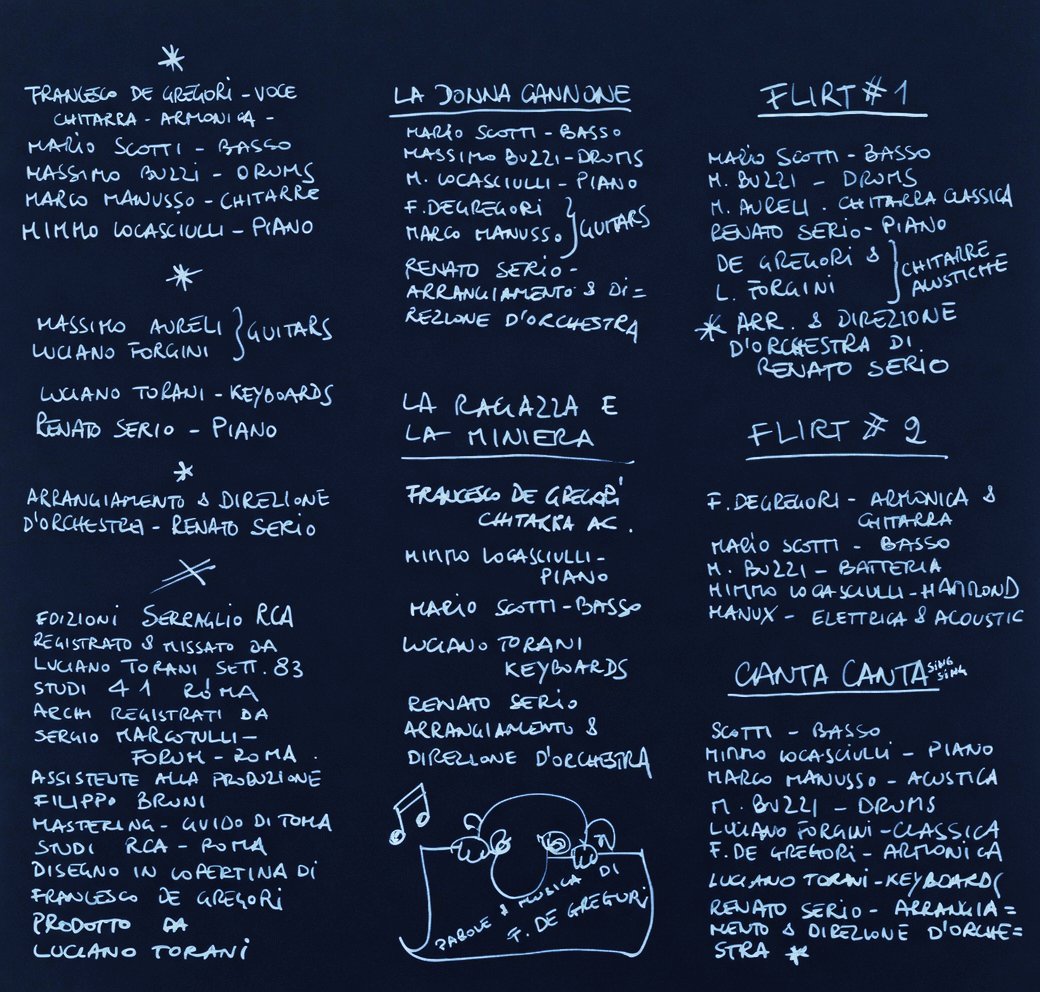 FRANCESCO DE GREGORI - VOCE
CHITARRA - ARMONICA -
MARIO SCOTTI - BASSO
MASSIMO BUZZI - DRUMS
MARCO MANUSSO - CHITARRE
MIMMO LOCASCIULLI - PIANO
MASSIMO AURELI
LUCIANO FORGINI
} GUITARS
LUCIANO TORANI - KEYBOARDS
RENATO SERIO - PIANO
ARRANGIAMENTO & DIREZIONE
D'ORCHESTRA - RENATO SERIO
EDIZIONI SERRAGLIO RCA
REGISTRATO & MISSATO DA
LUCIANO TORANI SETT. 83
STUDI 41 ROMA
ARCHI REGISTRATI DA
SERGIO MARCOTULLI -
FORUM - ROMA.
ASSISTENTE ALLA PRODUZIONE
FILIPPO BRUNI
MASTERING - GUIDO DI TOMA
STUDI RCA - ROMA
DISEGNO IN COPERTINA DI
FRANCESCO DE GREGORI
PRODOTTO DA
LUCIANO TORANI
LA DONNA CANNONE
MARIO SCOTTI - BASSO
MASSIMO BUZZI - DRUMS
M. LOCASCIULLI - PIANO
F. DEGREGORI
MARCO MANUSSO
} GUITARS
RENATO SERIO -
ARRANGIAMENTO & DI=
REZIONE D'ORCHESTRA
LA RAGAZZA E
LA MINIERA
FRANCESCO DE GREGORI
CHITARRA AC.
MIMMO LOCASCIULLI -
PIANO
MARIO SCOTTI - BASSO
LUCIANO TORANI
KEYBOARDS
RENATO SERIO
ARRANGIAMENTO &
DIREZIONE D'ORCHESTRA
PAROLE & MUZICA DI
F. DE GREGORI
FLIRT #1
MARIO SCOTTI - BASSO
M. BUZZI - DRUMS
M. AURELI. CHITARRA CLASSICA
RENATO SERIO - PIANO
DE GREGORI &
L. FORGINI
} CHITARRE
ACUSTICHE
* ARR. & DIREZIONE
D'ORCHESTRA DI
RENATO SERIO
FLIRT # 2
F. DEGREGORI - ARMONICA &
CHITARRA
MARIO SCOTTI - BASSO
M. BUZZI - BATTERIA
MIMMO LOCASCIULLI - HAMMOND
MANUX - ELETTRICA & ACOUSTIC
CANTA CANTA SING SING
SCOTTI - BASSO
MIMMO LOCASCIULLI - PIANO
MARCO MANUSSO - ACUSTICA
M. BUZZI - DRUMS
LUCIANO FORGINI - CLASSICA
F. DE GREGORI - ARMONICA
LUCIANO TORANI - KEYBOARDS
RENATO SERIO - ARRANGIA=
MENTO & DIREZIONE D'ORCHE=
STRA *